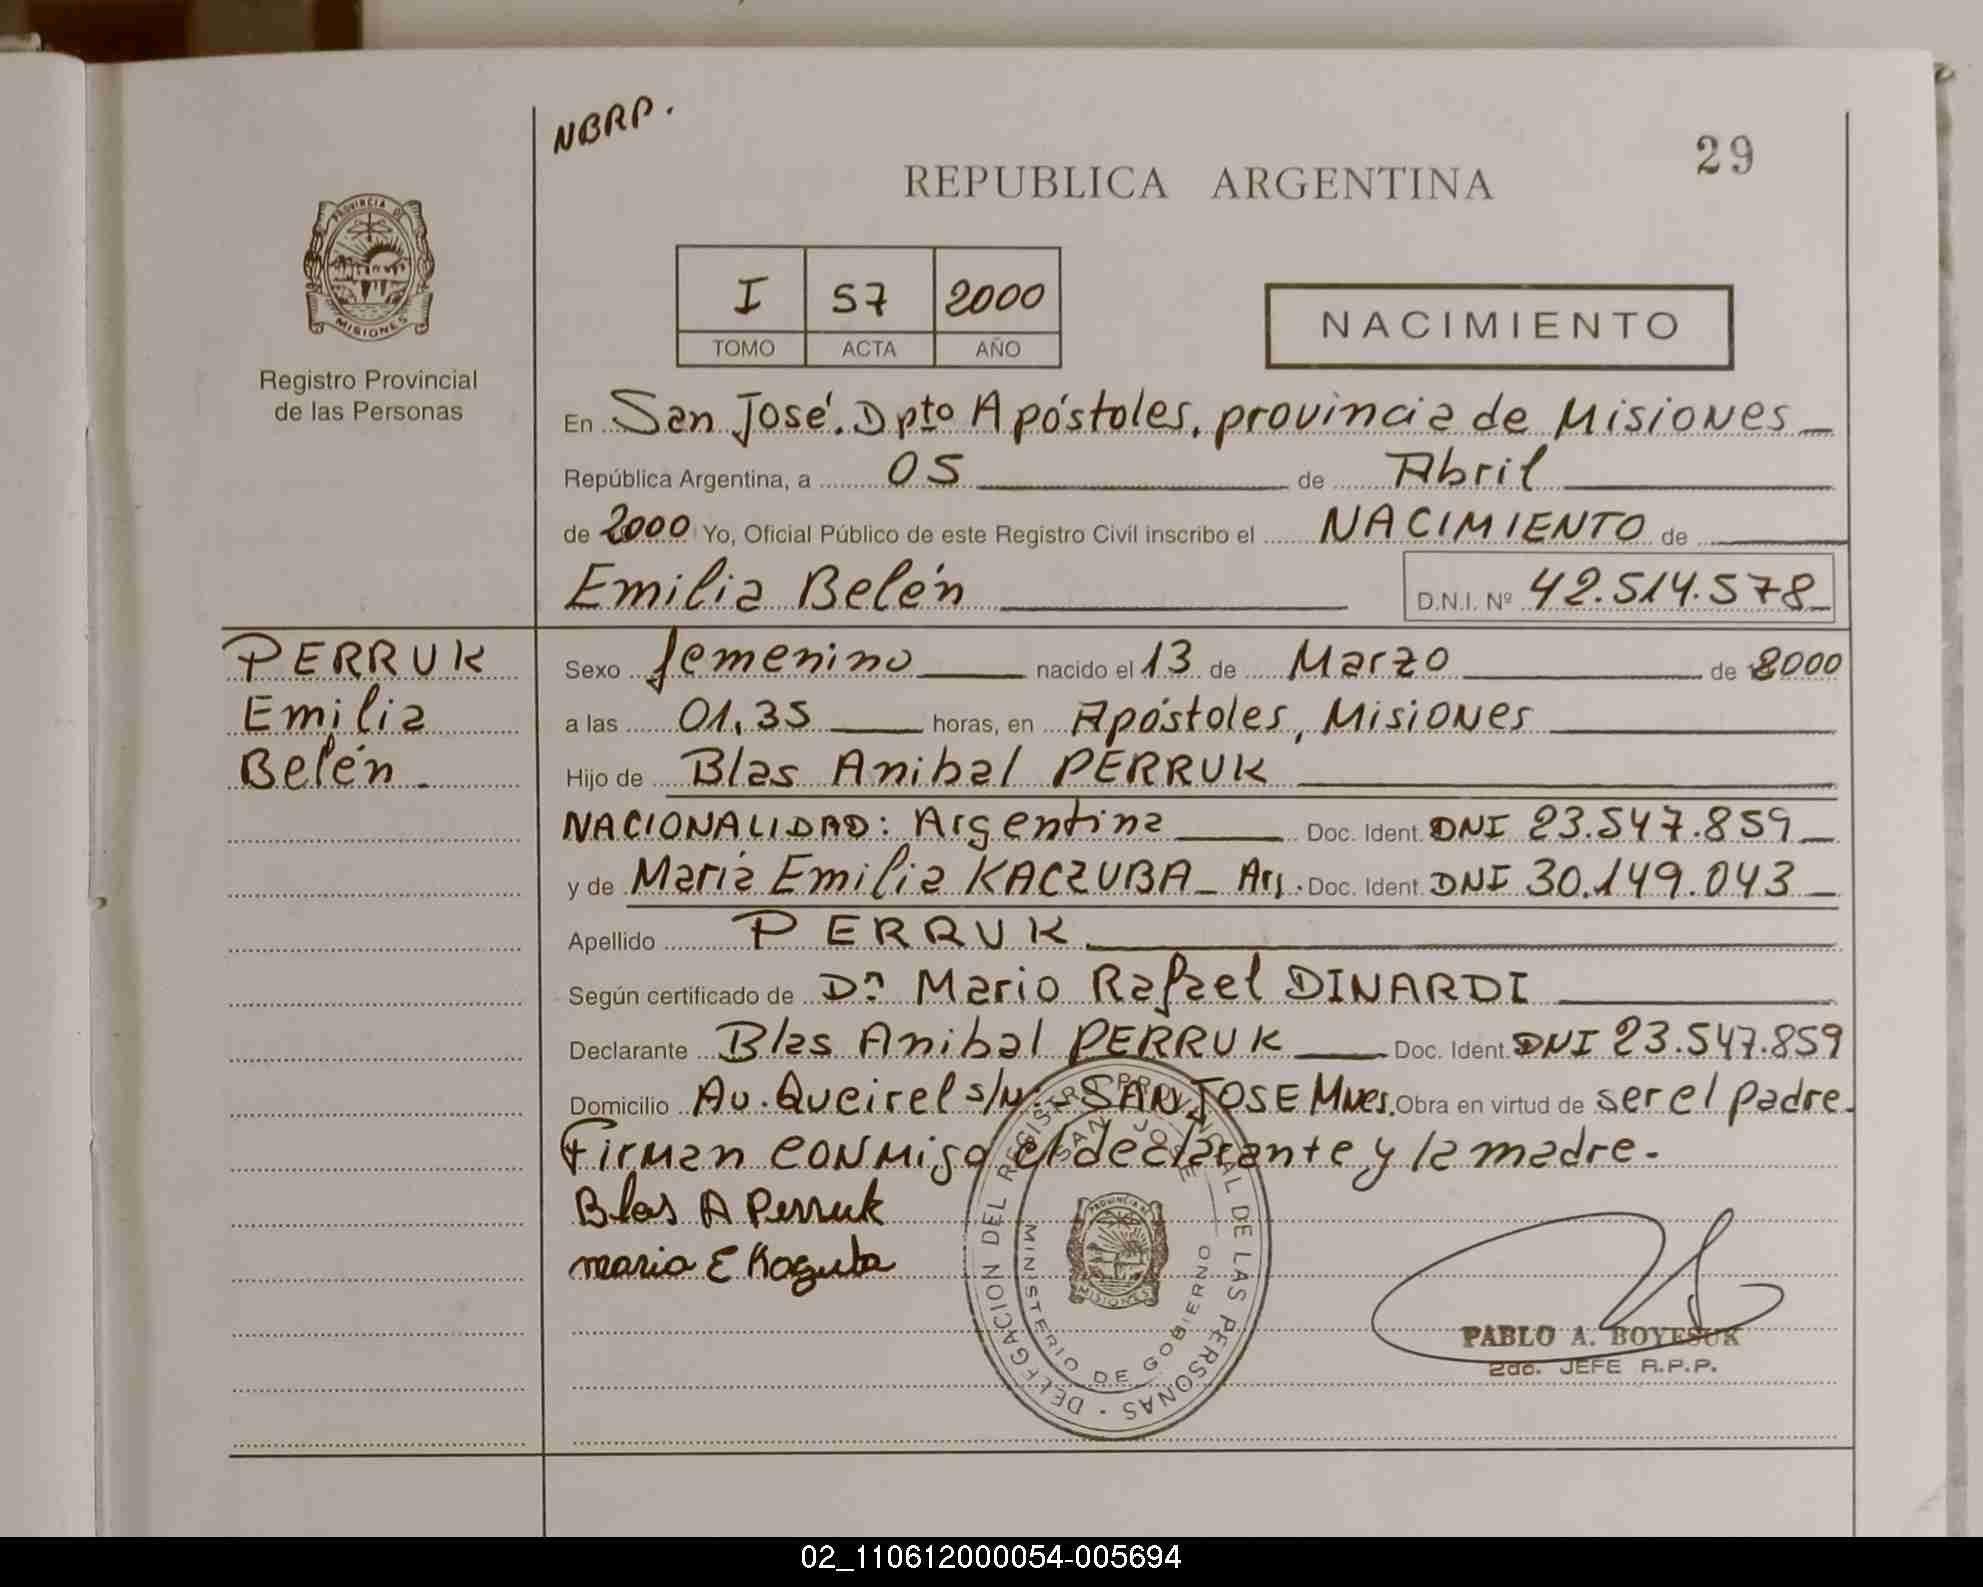 NBRP.
29
REPUBLICA ARGENTINA
PROVINCIA DE
MISIONES
Registro Provincial
de las Personas
I 57 2000
TOMO ACTA AÑO
NACIMIENTO
En San José. Dpto Apóstoles, provincia de Misiones
República Argentina, a 05 de Abril
de 2000 Yo, Oficial Público de este Registro Civil inscribo el NACIMIENTO de
Emilia Belén D.N.I. Nº 42.514.578
PERRUK
Emilia
Belén
Sexo femenino nacido el 13 de Marzo de 2000
a las 01,35 horas, en Apóstoles, Misiones
Hijo de Blas Anibal PERRUK
NACIONALIDAD: Argentina Doc. Ident. DNI 23.547.859
y de María Emilia KACZUBA Arg. Doc. Ident. DNI 30.149.043
Apellido PERRUK
Según certificado de Dn. Mario Rafael DINARDI
Declarante Blas Anibal PERRUK Doc. Ident. DNI 23.547.859
Domicilio Av. Queirel s/n - SAN JOSE Mnes. Obra en virtud de ser el padre.
Firman conmigo el declarante y la madre.
Blas A Perruk
maria E
DELEGACION DEL REGISTRO PROVINCIAL DE LAS PERSONAS
SAN JOSE
MINISTERIO DE GOBIERNO
PROVINCIA DE
MISIONES
PABLO A. BOYESUK
2do. JEFE R.P.P.
02_110612000054-005694